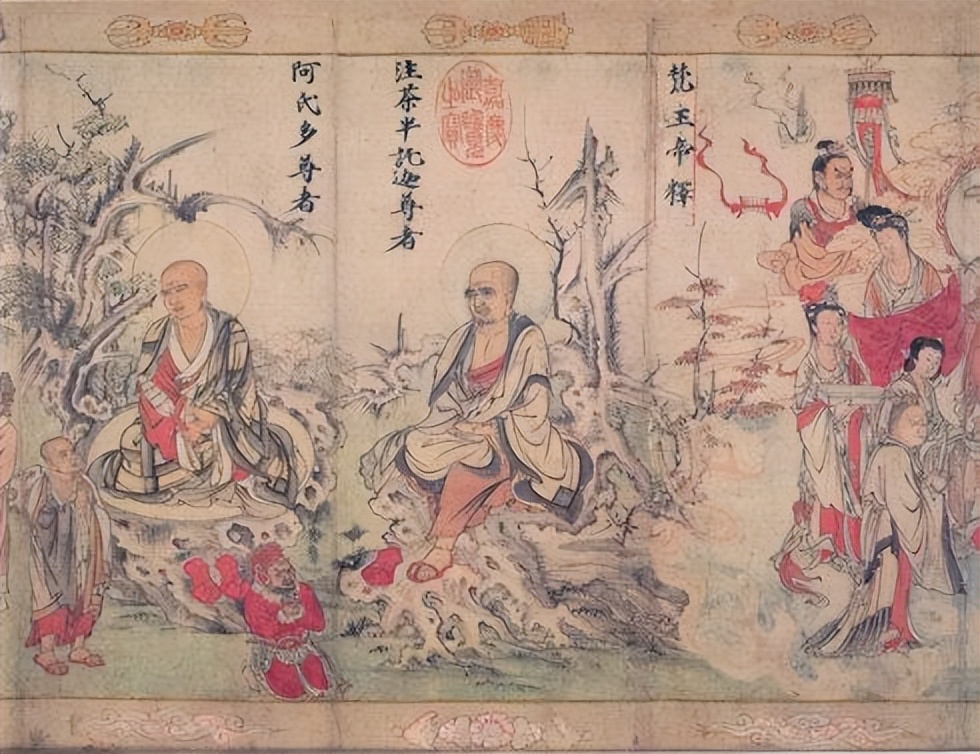 梵王帝釋
嘉慶
御覽
之寶
注茶半託迦尊者
阿氏多尊者